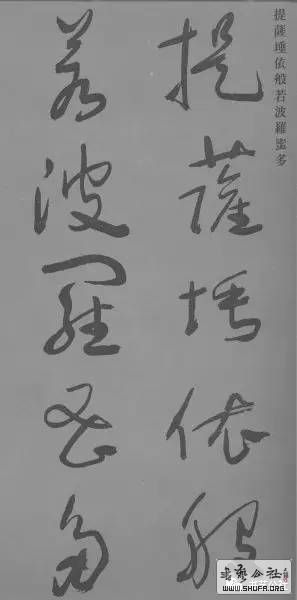 提薩埵依般若波羅蜜多
提薩埵依般
若波羅蜜多
书艺公社
WWW.SHUFA.ORG